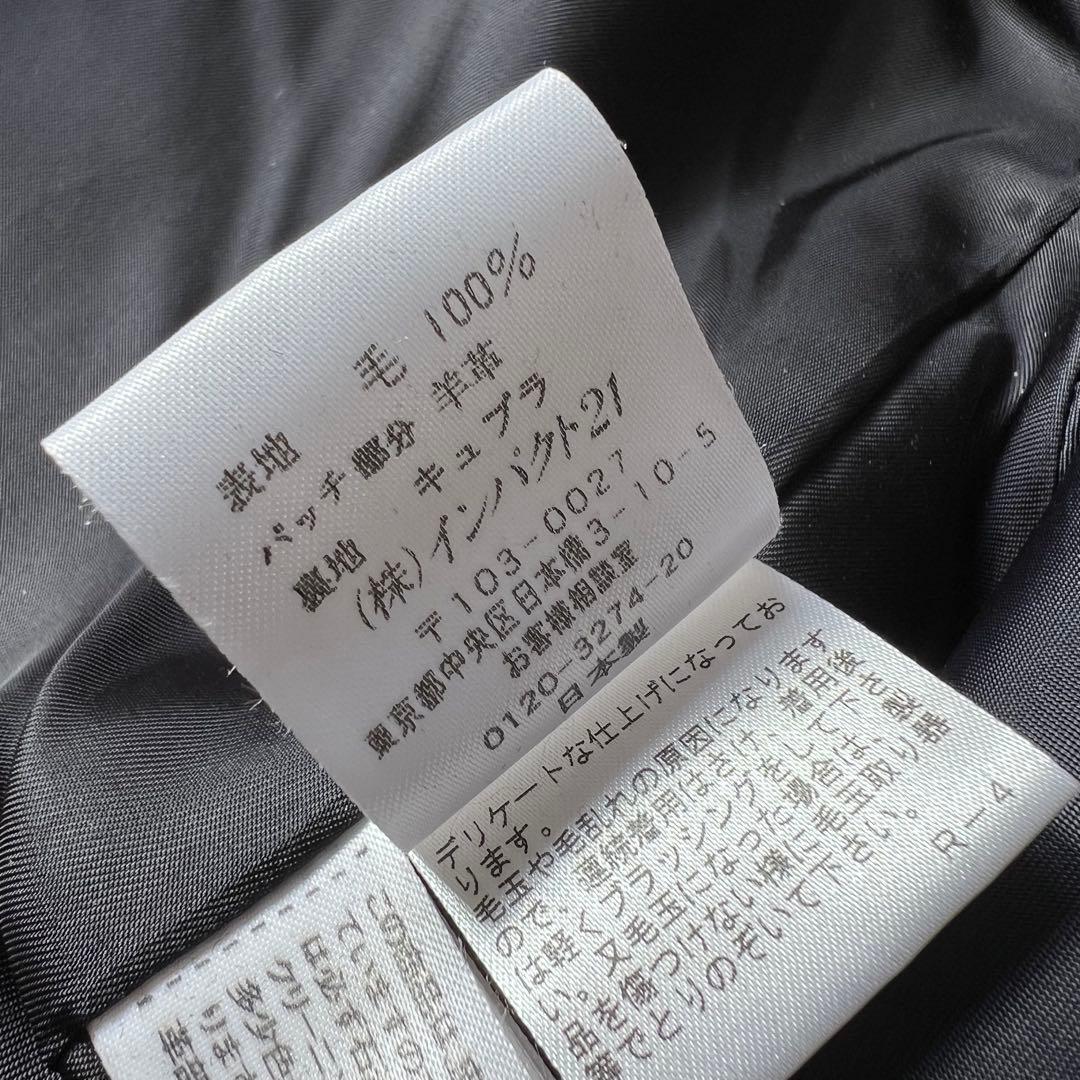 表地 毛 100%
パッチ部分 羊革
裏地 キュプラ
(株)インパクト21
〒103-0027
東京都中央区日本橋3-10-5
お客様相談室
0120-3274-20
日本製
デリケートな仕上げになってお
ります。
毛玉や毛乱れの原因になります
ので、連続着用はさけ、着用後
は軽くブラッシングをして下さ
い。又毛玉になった場合は、製
品を傷つけない様に毛玉取り器
等でとりのぞいて下さい。
R-4
ていますの
クリーニ
多少色
ります